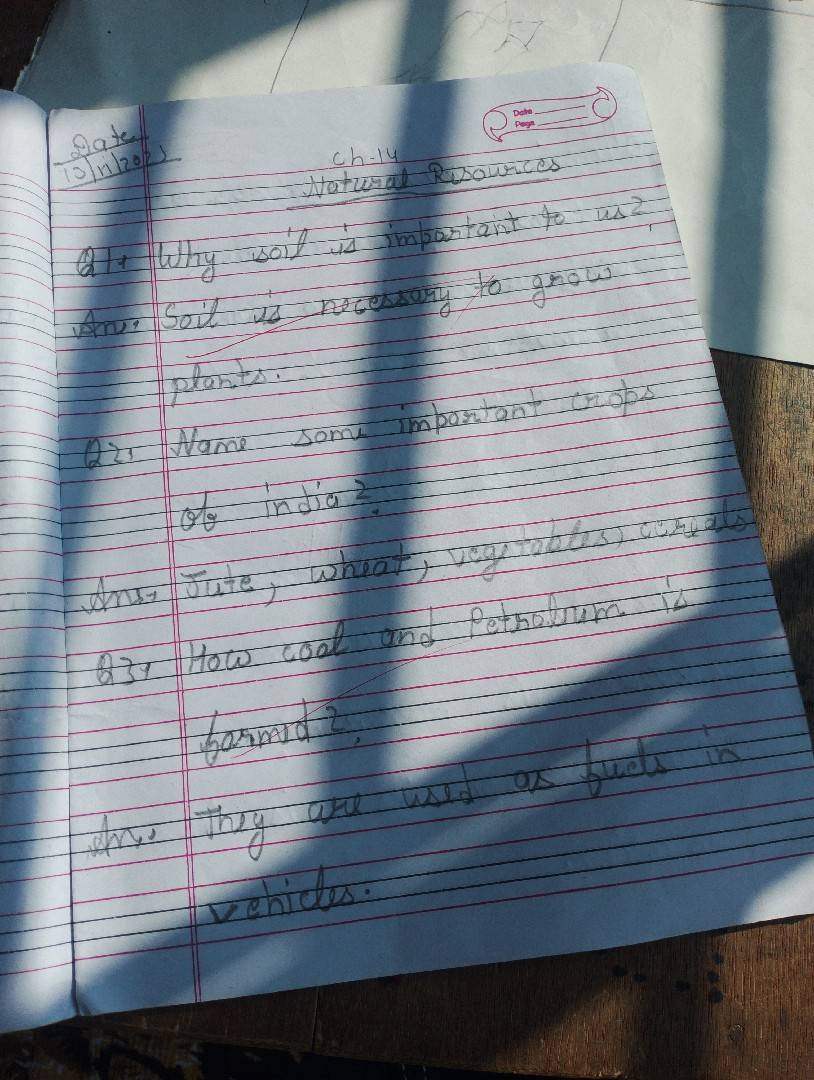 Date
Page
Date
Ch-14
Natural Resources
Q1. Why soil is important to us?
Ans. Soil is necessary to grow
plants.
Q2. Name some important crops
of india?
Ans. Jute, wheat, vegetables, cereals
Q3. How coal and Petroleum is
formed?
Ans. They are used as fuels in
vehicles.